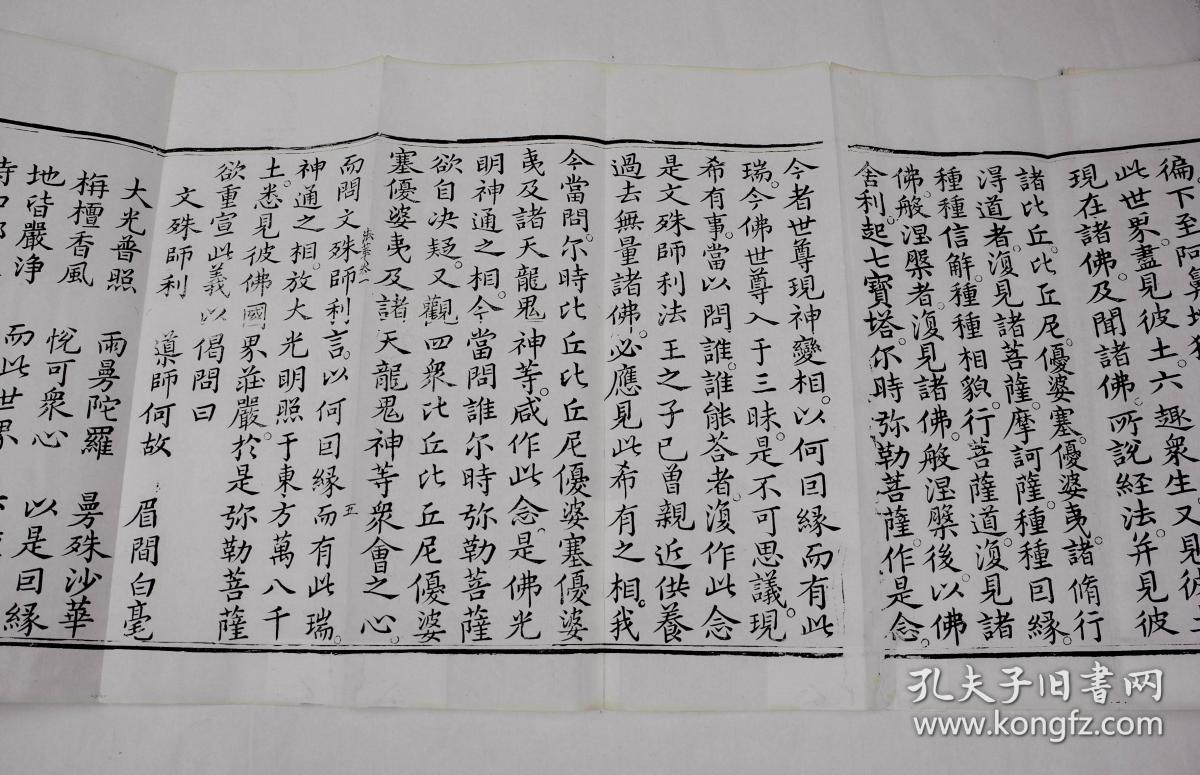 徧下至阿鼻地
此世界盡見彼土六趣衆生又見彼土
現在諸佛及聞諸佛所說経法并見彼
諸比丘。比丘尼。優婆塞。優婆夷。諸脩行
淂道者。澓見諸菩薩。摩訶薩。種種囙緣。
種種信解。種種相貌。行菩薩道。澓見諸
佛。般涅槃者。澓見諸佛。般涅槃後。以佛
舍利。起七寶塔。尒時弥勒菩薩。作是念。
今者世尊現神變相。以何囙緣而有此
瑞。今佛世尊入于三昧。是不可思議。現
希有事。當以問誰。誰能荅者。澓作此念
是文殊師利法王之子已曾親近供養
過去無量諸佛。必應見此希有之相。我
今當問。尒時比丘比丘尼優婆塞優婆
夷及諸天龍鬼神等。咸作此念。是佛光
明神通之相。今當問誰尒時弥勒菩薩
欲自决疑。又觀四衆比丘比丘尼優婆
塞優婆夷及諸天龍鬼神等衆會之心。
法華卷一 五
而問文殊師利言。以何囙緣而有此瑞。
神通之相。放大光明照于東方萬八千
土。悉見彼佛國界莊嚴。於是弥勒菩薩
欲重宣此義以偈問曰
文殊師利 導師何故 眉間白毫
大光普照 雨曼陀羅 曼殊沙華
栴檀香風 悅可衆心 以是囙緣
地皆嚴净 而此世界
孔夫子旧書网
www.kongfz.com